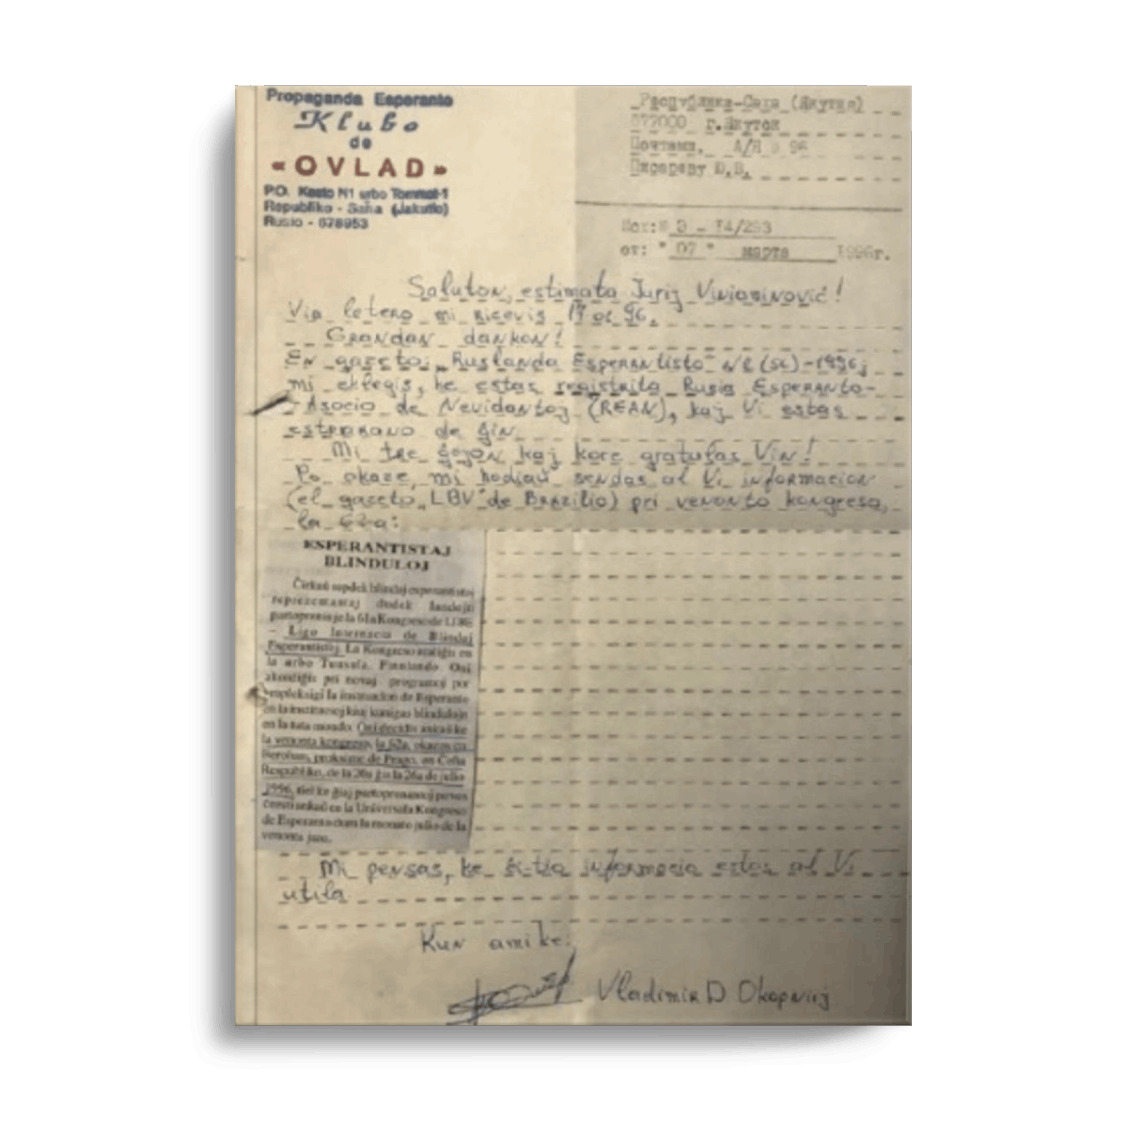 Propaganda Esperanto
Klubo
de
«OVLAD»
P.O. Kesto N1 urbo Tommot-1
Republiko - Saha (Jakutio)
Rusio - 678953
Республика-Саха (Якутия)
677000 г.Якутск
Почтамт, А/Я 96
Исх:№ D - 14/293
от: " 07 " марта 1996г.
Saluton, estimata Jurij Viniaminoviĉ!
Vian letero mi ricevis
Grandan dankon!
En gazeto: „Ruslanda Esperantisto" №2 -1996j
mi eklegis, ke estas registrita Rusia Esperanto-
-Asocio de Nevidantoj (REAN), kaj Vi estas
estrarano de ĝin.
Mi tre ĝojon kaj kore gratulas Vin!
Po okaze, mi hodiaŭ sendas al Vi informacion
(el gazeto „LBV" de Brazilio) pri venonto kongreso,
la 62a:
ESPERANTISTAJ
BLINDULOJ
Ĉirkaŭ sepdek blindaj esperantistoj
reprezentantaj dudek landojn
partoprenis je la 61a Kongreso de LIBE
- Ligo Internacia de Blindaj
Esperantistoj. La Kongreso okazis en
la urbo Tuusula, Finnlando. Oni
akordiĝis pri novaj programoj por
kompleksigi la instruadon de Esperanto
en la institucioj kiuj kunigas blindulojn
en la tuta mondo. Oni decidis ankaŭ ke
la venonta kongreso, la 62a, okazos en
Beroŭno, proksime de Prago, en Ĉeĥa
Respubliko, de la 20a ĝis la 26a de julio
1996, tiel ke ĝiaj partoprenantoj povos
ĉeesti ankaŭ en la Universala Kongreso
de Esperanto dum la monato julio de la
venonta jaro.
Mi pensas, ke ĉi-tio informacio estas al Vi
utila.
Kun amike:
Vladimir D. Okopnij